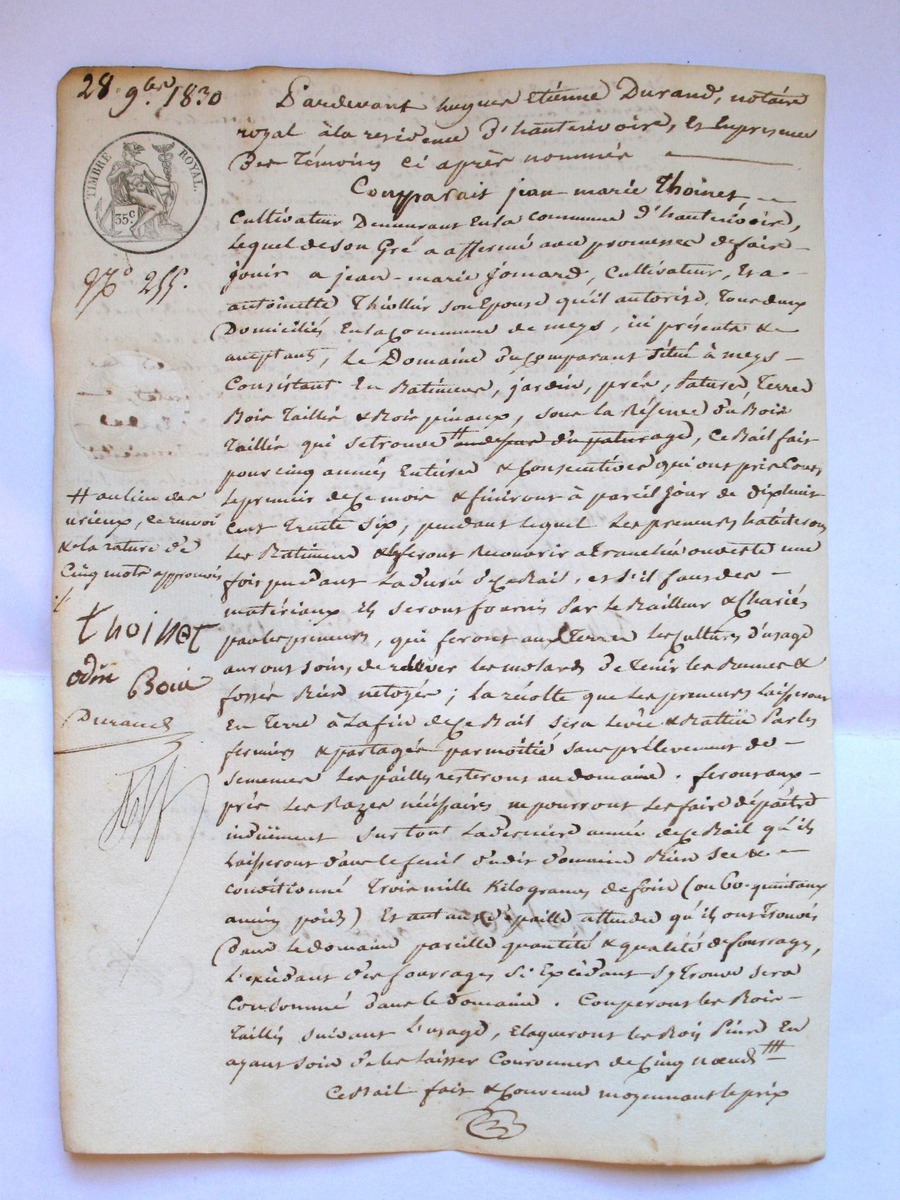 28 9bre 1830
TIMBRE ROYAL.
35c
No 255.
Pardevant hugues Etiénne Durand, notaire
royal à la residence d'hauterivoire, Et En presence
Des Témoins ci après nommés
Comparait jean marie Thoinet,
Cultivateur Demeurant En la commune d'hauterivoire,
Lequel de son Gré a affermé avec promesse de faire
jouir a jean-marie jomard, Cultivateur, Et a
antoinette Thiollier son Epouse qu'il autorise, Tous deux
Domiciliés En la Commune de meys, ici présents &
acceptants, Le Domaine du comparant situé à meys
Consistant En Batimens, jardin, prés, patures, Terres
Bois Taillis & Bois pinaux, sous la Réserve du Bois
Taillis qui se trouve # au dessus du paturage, Ce Bail fait
pour cinq années Entières & Consécutives qui ont pris Cours
Le premier de Ce mois & finiront à pareil jour de dix huit
Cent Trente Six, pendant lequel Les preneurs habiteront
Les Batimens & feront Recouvrir a Tranchée ouverte une
fois pendant La durée de Ce Bail, et s'il faut des
matériaux ils seront fournis par le Bailleur & Chariés
par les preneurs, qui feront aux Terres les Cultures d'usage
auront soin, de relever les molards de tenir les &
fossés Bien netoyés ; la récolte que Les preneurs Laisseront
En Terre à La fin de Ce Bail sera levée & Battue par les
fermiers & partagée par moitié sans prélèvement de
semences Les pailles resteront au domaine. feront aux
prés Les Razes nécéssaires ne pourront Les faire dépaitre
induement surtout La dernière année de Ce Bail qu'ils
Laisseront dans le fenil dudit domaine Bien sec &
conditionné Trois mille Kilogrames de foin (ou 60 quintaux
ancien poids) Et autant de paille attendu qu'ils ont Trouvés
Dans le domaine pareille quantité & qualité de fourrages,
L'excédant des fourrages Si Excédant s'y Trouve sera
Consommé dans le domaine. Couperont les Bois
Taillis suivant L'usage, Elagueront les Bois Pins En
ayant soin de les laisser Couronnés de Cinq nœuds #
Ce Bail fait & Convenu moyennant le prix
# au lieu des
, le renvoi
& la rature de
Cinq mots approuvés
Thoinet
odin Boiu
Durand